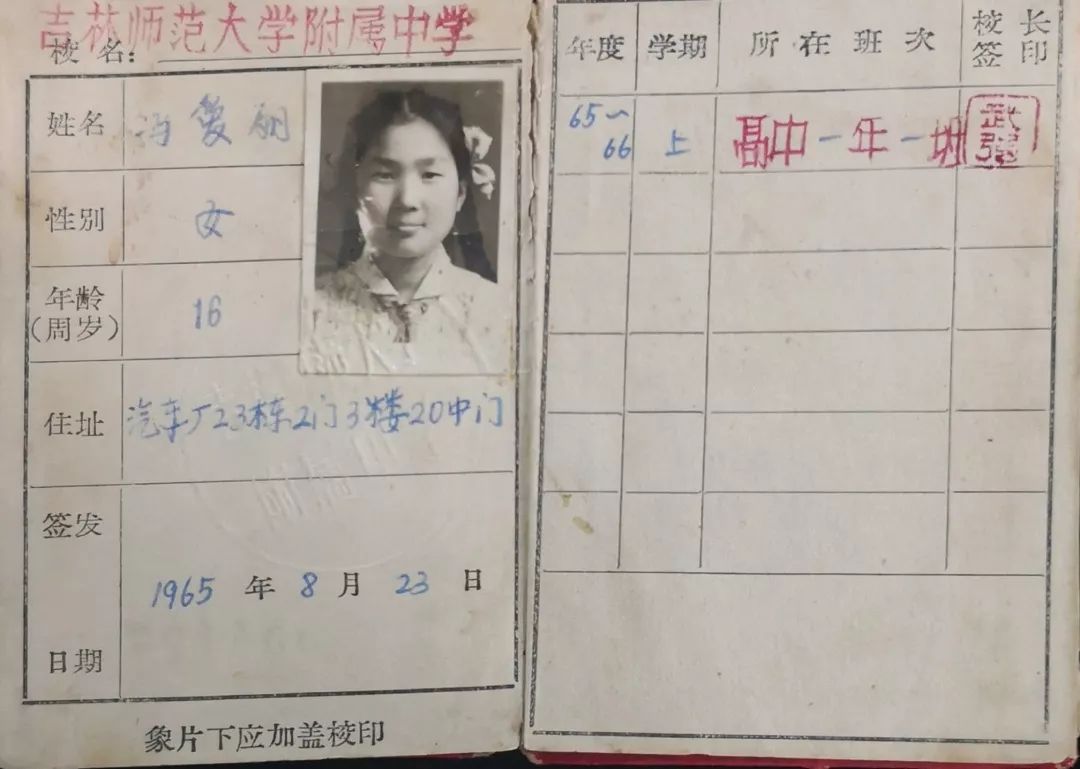 吉林师范大学附属中学
校名：
姓名 冯爱丽
性别 女
年龄
（周岁） 16
住址 汽车厂23栋2门3楼20中门
签发
1965 年 8 月 23 日
日期
象片下应加盖校印
年度 学期 所在班次 校长
签印
65～
66 上 高中一年一班 武强